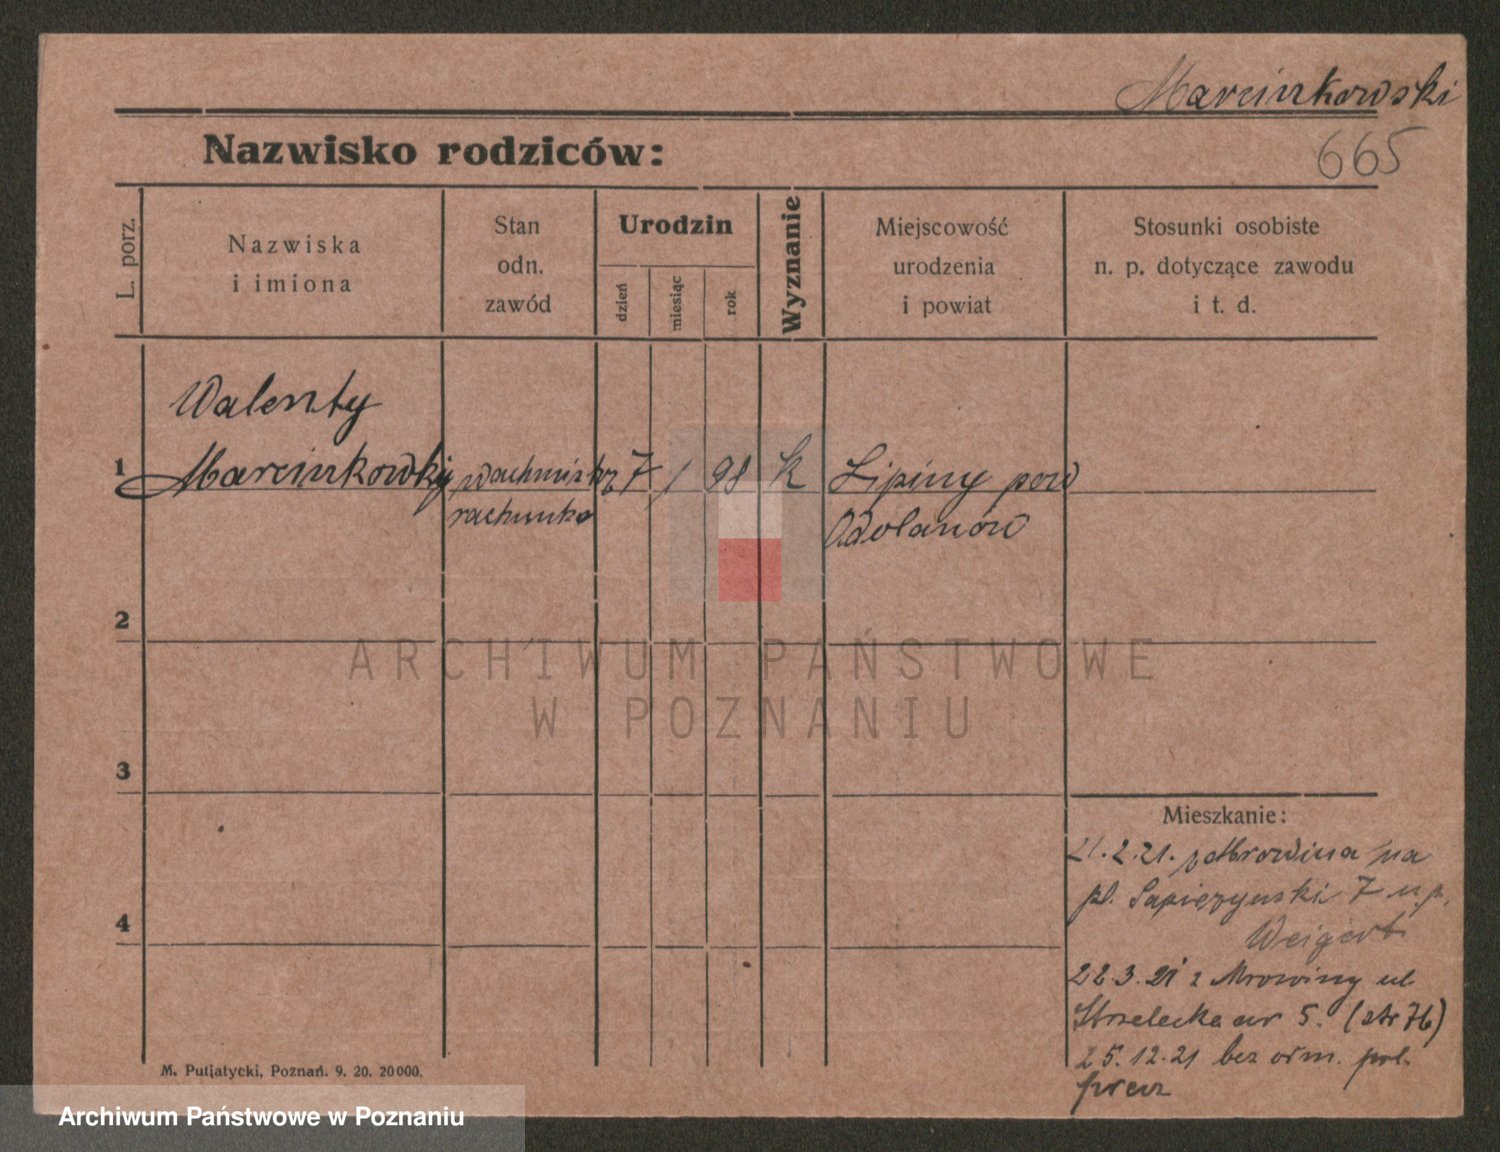 Marcinkowski
665
Nazwisko rodziców:
L. porz.
Nazwiska
i imiona
Stan
odn.
zawód
Urodzin
dzień
miesiąc
rok
Wyznanie
Miejscowość
urodzenia
i powiat
Stosunki osobiste
n. p. dotyczące zawodu
i t. d.
Walenty
1 Marcinkowski wachmistrz 7 / 98 k Lipiny pow
rachunko Adolanów
2
ARCHIWUM PAŃSTWOWE
W POZNANIU
3
4
Mieszkanie:
21.2.21. z Mrowina na
pl. Sapieżyński 7 u p.
Weigert
22.3.21 z Mrowiny ul.
Strzelecka nr 5. (str 76)
25.12.21 bez
M. Putiatycki, Poznań. 9. 20. 20000.
Archiwum Państwowe w Poznaniu